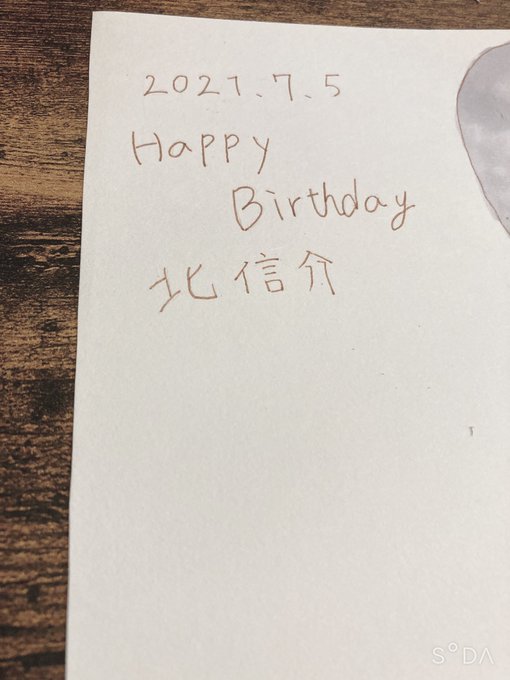 2021.7.5
Happy
Birthday
北信介
SODA